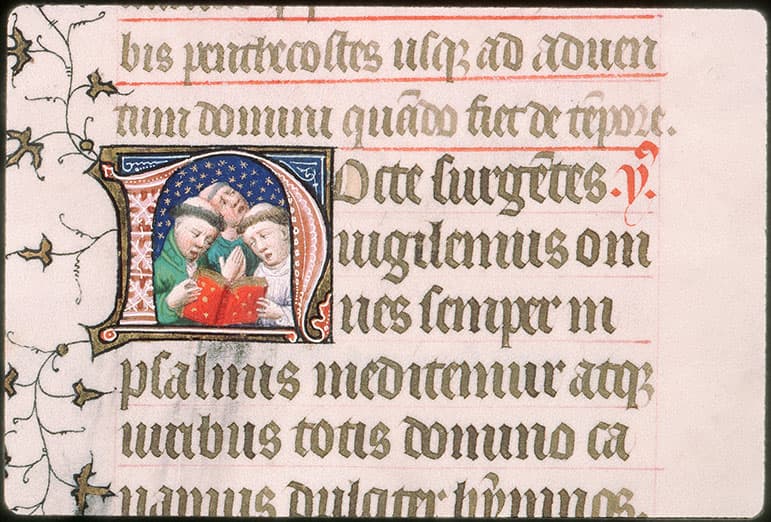 bis penthecostes usq; ad aduen
tum domini quādo fiet de tēpore.
Nocte surgētes. ỹ.
uigilemus om
nes semper in
psalmis meditemur atq;
uiribus totis domino ca
namus dulciter hȳmnos.